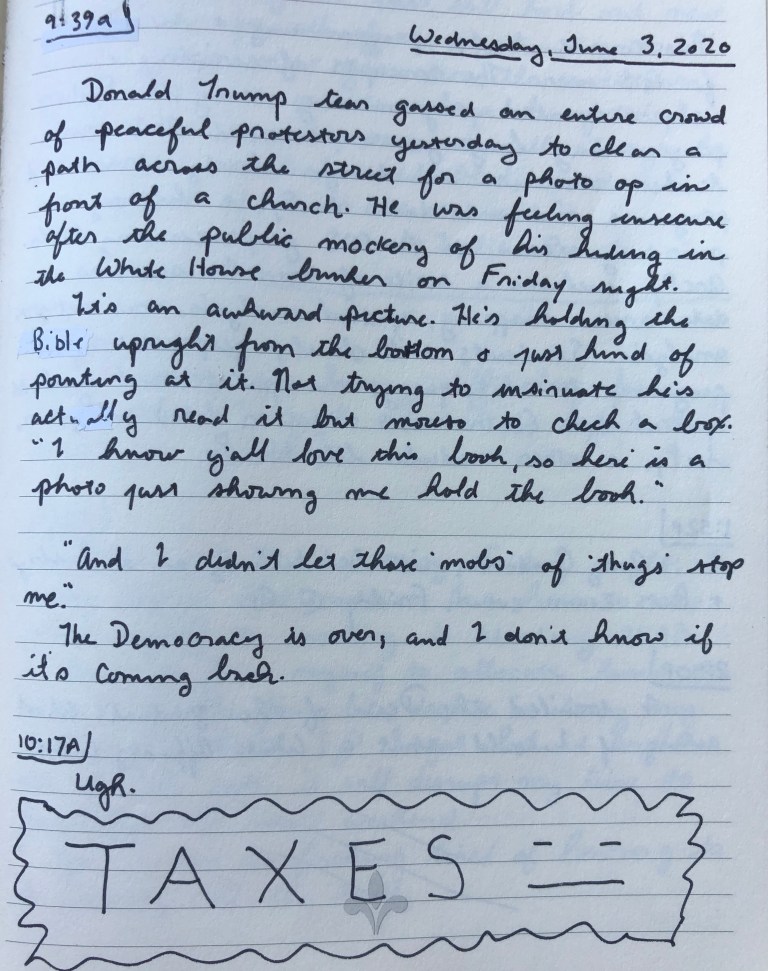 9:39a
Wednesday, June 3, 2020
Donald Trump tear gassed an entire crowd
of peaceful protestors yesterday to clear a
path across the street for a photo op in
front of a church. He was feeling insecure
after the public mockery of his hiding in
the White House bunker on Friday night.
It's an awkward picture. He's holding the
Bible upright from the bottom & just kind of
pointing at it. Not trying to insinuate he's
actually read it but moreso to check a box.
"I know y'all love this book, so here is a
photo just showing me hold the book."
"And I didn't let those 'mobs' of 'thugs' stop
me."
The Democracy is over, and I don't know if
it's coming back.
10:17A
Ugh.
TAXES